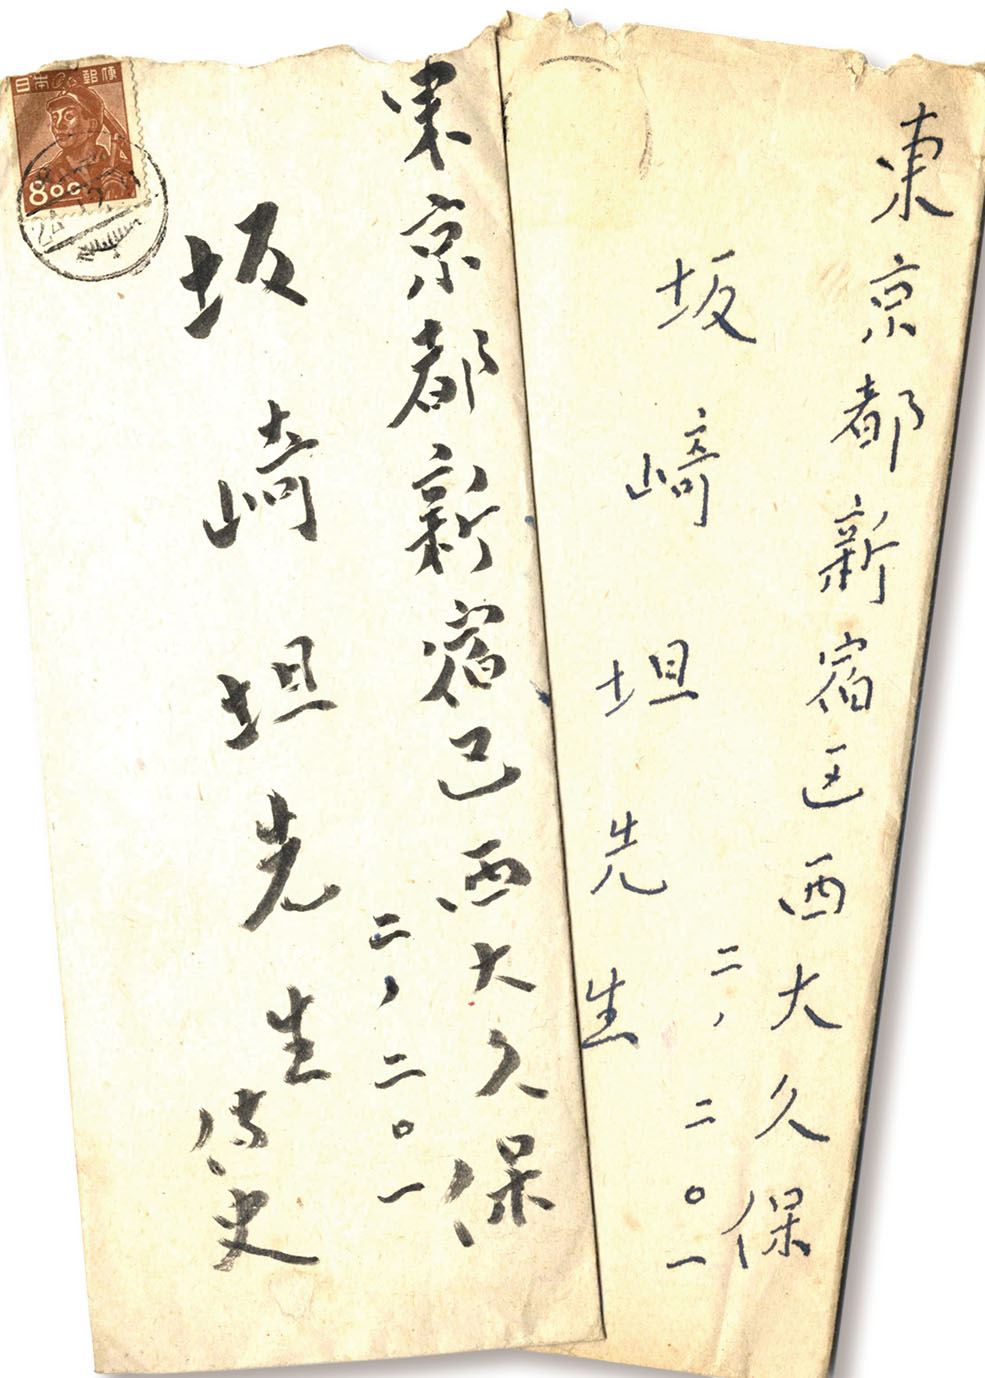 東京都新宿区西大久保
二、二〇一
坂崎坦先生
東京都新宿区西大久保
二、二〇一
坂崎坦先生
侍史
日本郵便
8.00